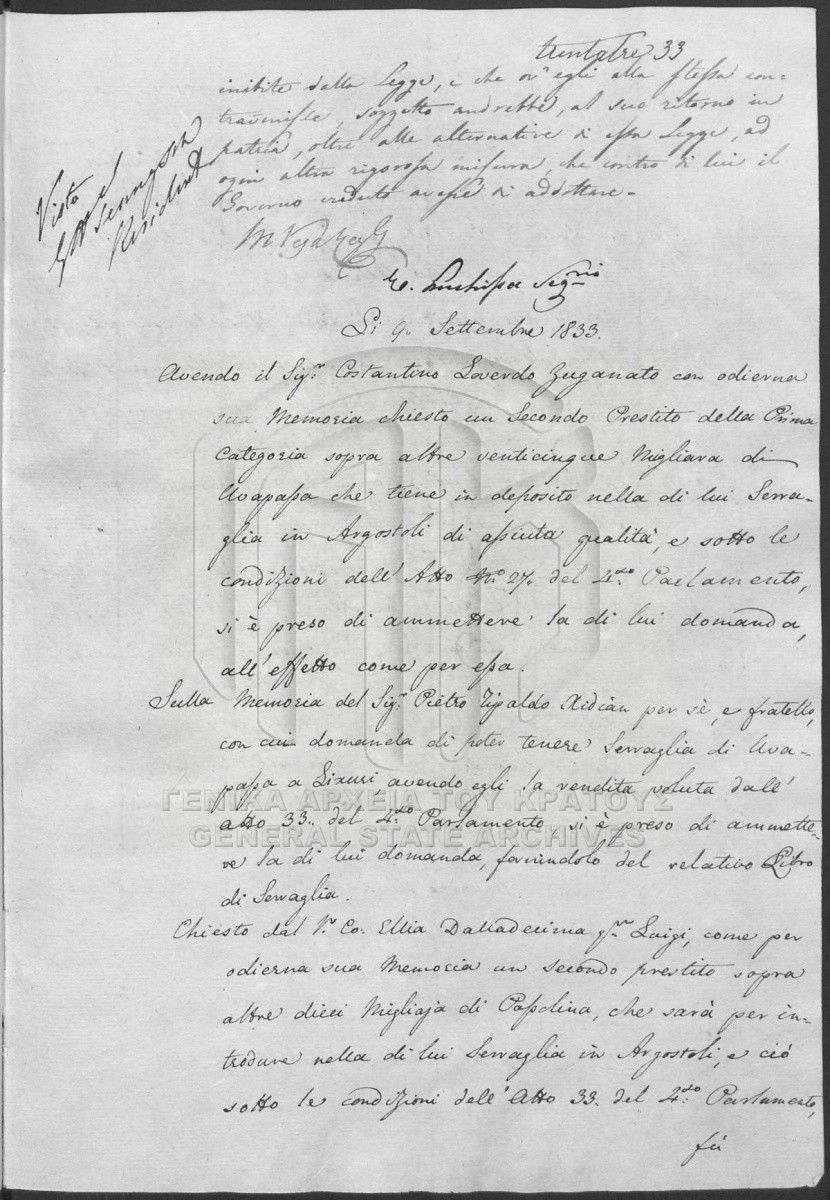 trentatre 33
inibite dalla Legge, e che ov' egli alla stessa con=
travenisse, soggetto andrebbe, al suo ritorno in
patria, oltre alle alternative di essa Legge, ad
ogni altra rigorosa misura, che contro di lui il
Governo creduto avesse di addottare.
Visto
Resident
Li 9. Settembre 1833.
Avendo il Sigr. Costantino Loverdo Zuganato con odierna
sua Memoria chiesto un Secondo Prestito della Prima
Categoria sopra altre venticinque Migliara di
Uvapassa che tiene in deposito nella di lui Serra=
glia in Argostoli di asciuta qualità, e sotto le
condizioni dell' Atto No. 27. del 4to. Parlamento,
si è preso di ammettere la di lui domanda,
all' effetto come per essa.
Sulla Memoria del Sigr. Pietro Tipaldo Xidian per sè, e fratello,
con cui domanda di poter tenere Serraglia di Uva=
passa a Lixuri avendo egli la vendita voluta dall'
atto 33. del 4to. Parlamento, si è preso di ammette=
re la di lui domanda, fornindolo del relativo Libro
di Serraglia.
Chiesto dal Nr. Co. Ellia Dalladecima qm. Luigi, come per
odierna sua Memoria un secondo prestito sopra
altre dieci Migliaja di Passolina, che sarà per in=
trodurre nella di lui Serraglia in Argostoli, e ciò
sotto le condizioni dell' Atto 33. del 4to. Parlamento,
fù
ΓΕΝΙΚΑ ΑΡΧΕΙΑ ΤΟΥ ΚΡΑΤΟΥΣ
GENERAL STATE ARCHIVES